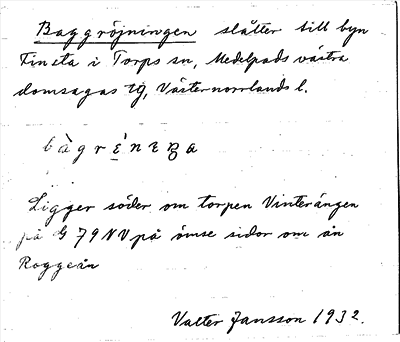 Baggröjningen slåtter till byn
Finsta i Torps sn, Medelpads västra
domsagas tg, Västernorrlands l.
Ligger söder om torpen Vinterängen
på G 79 NV på ömse sidor om ån
Roggeån
Valter Jansson 1932.